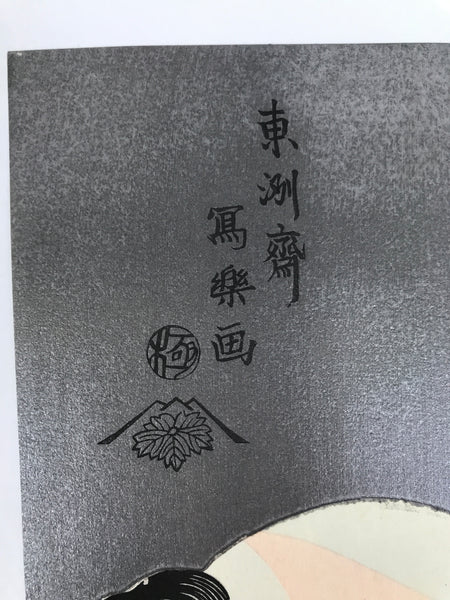 東洲齋
寫樂画
極